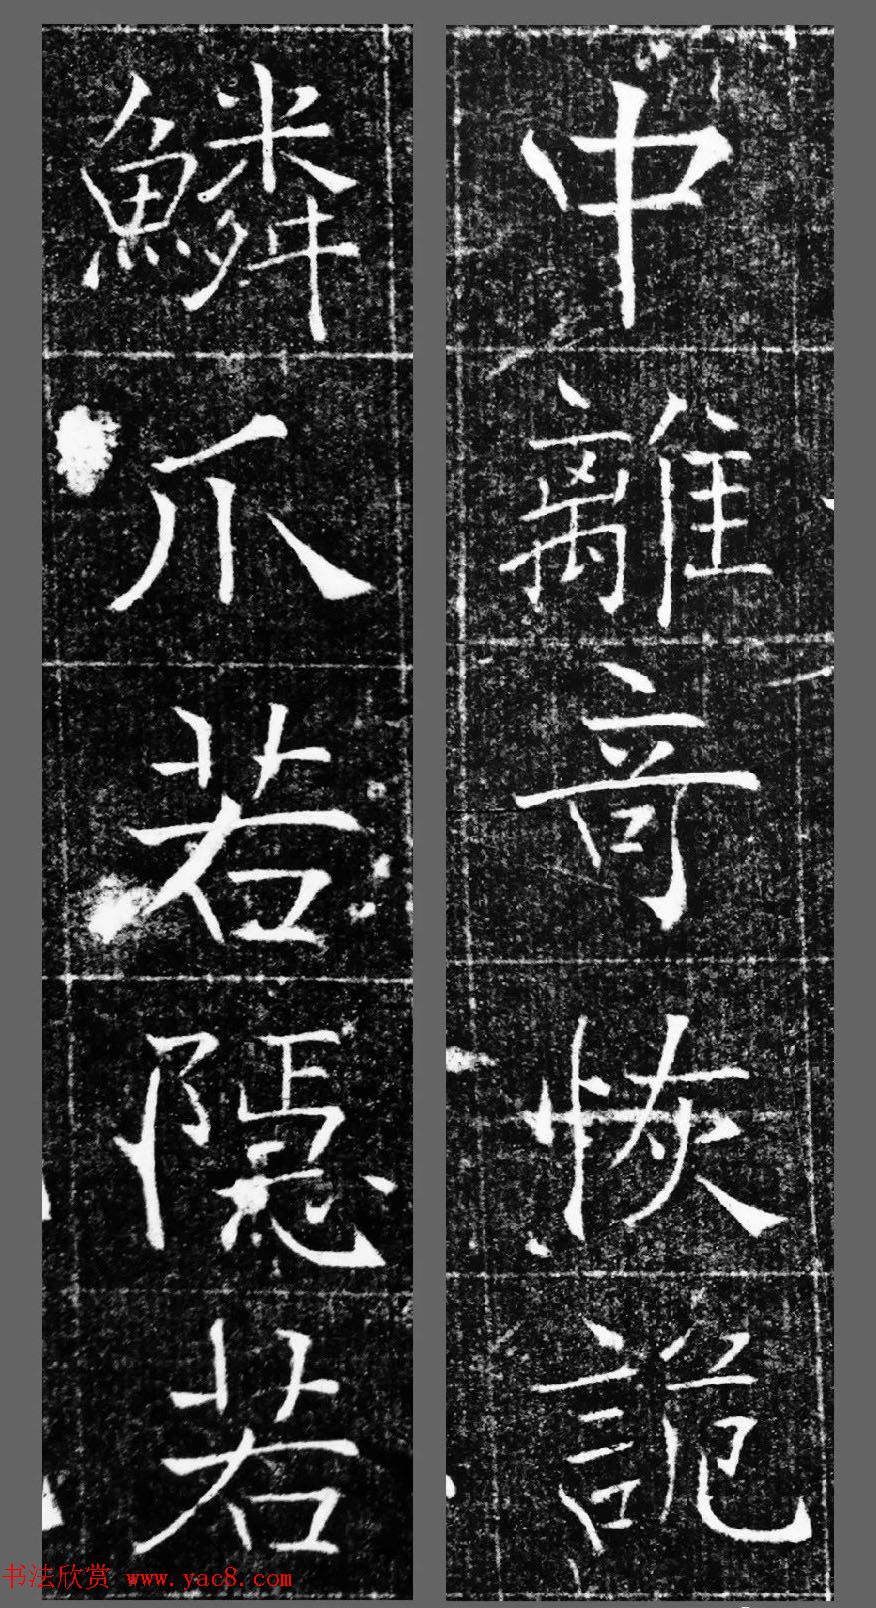 中離奇恢詭
鱗爪若隱若
书法欣赏 www.yac8.com